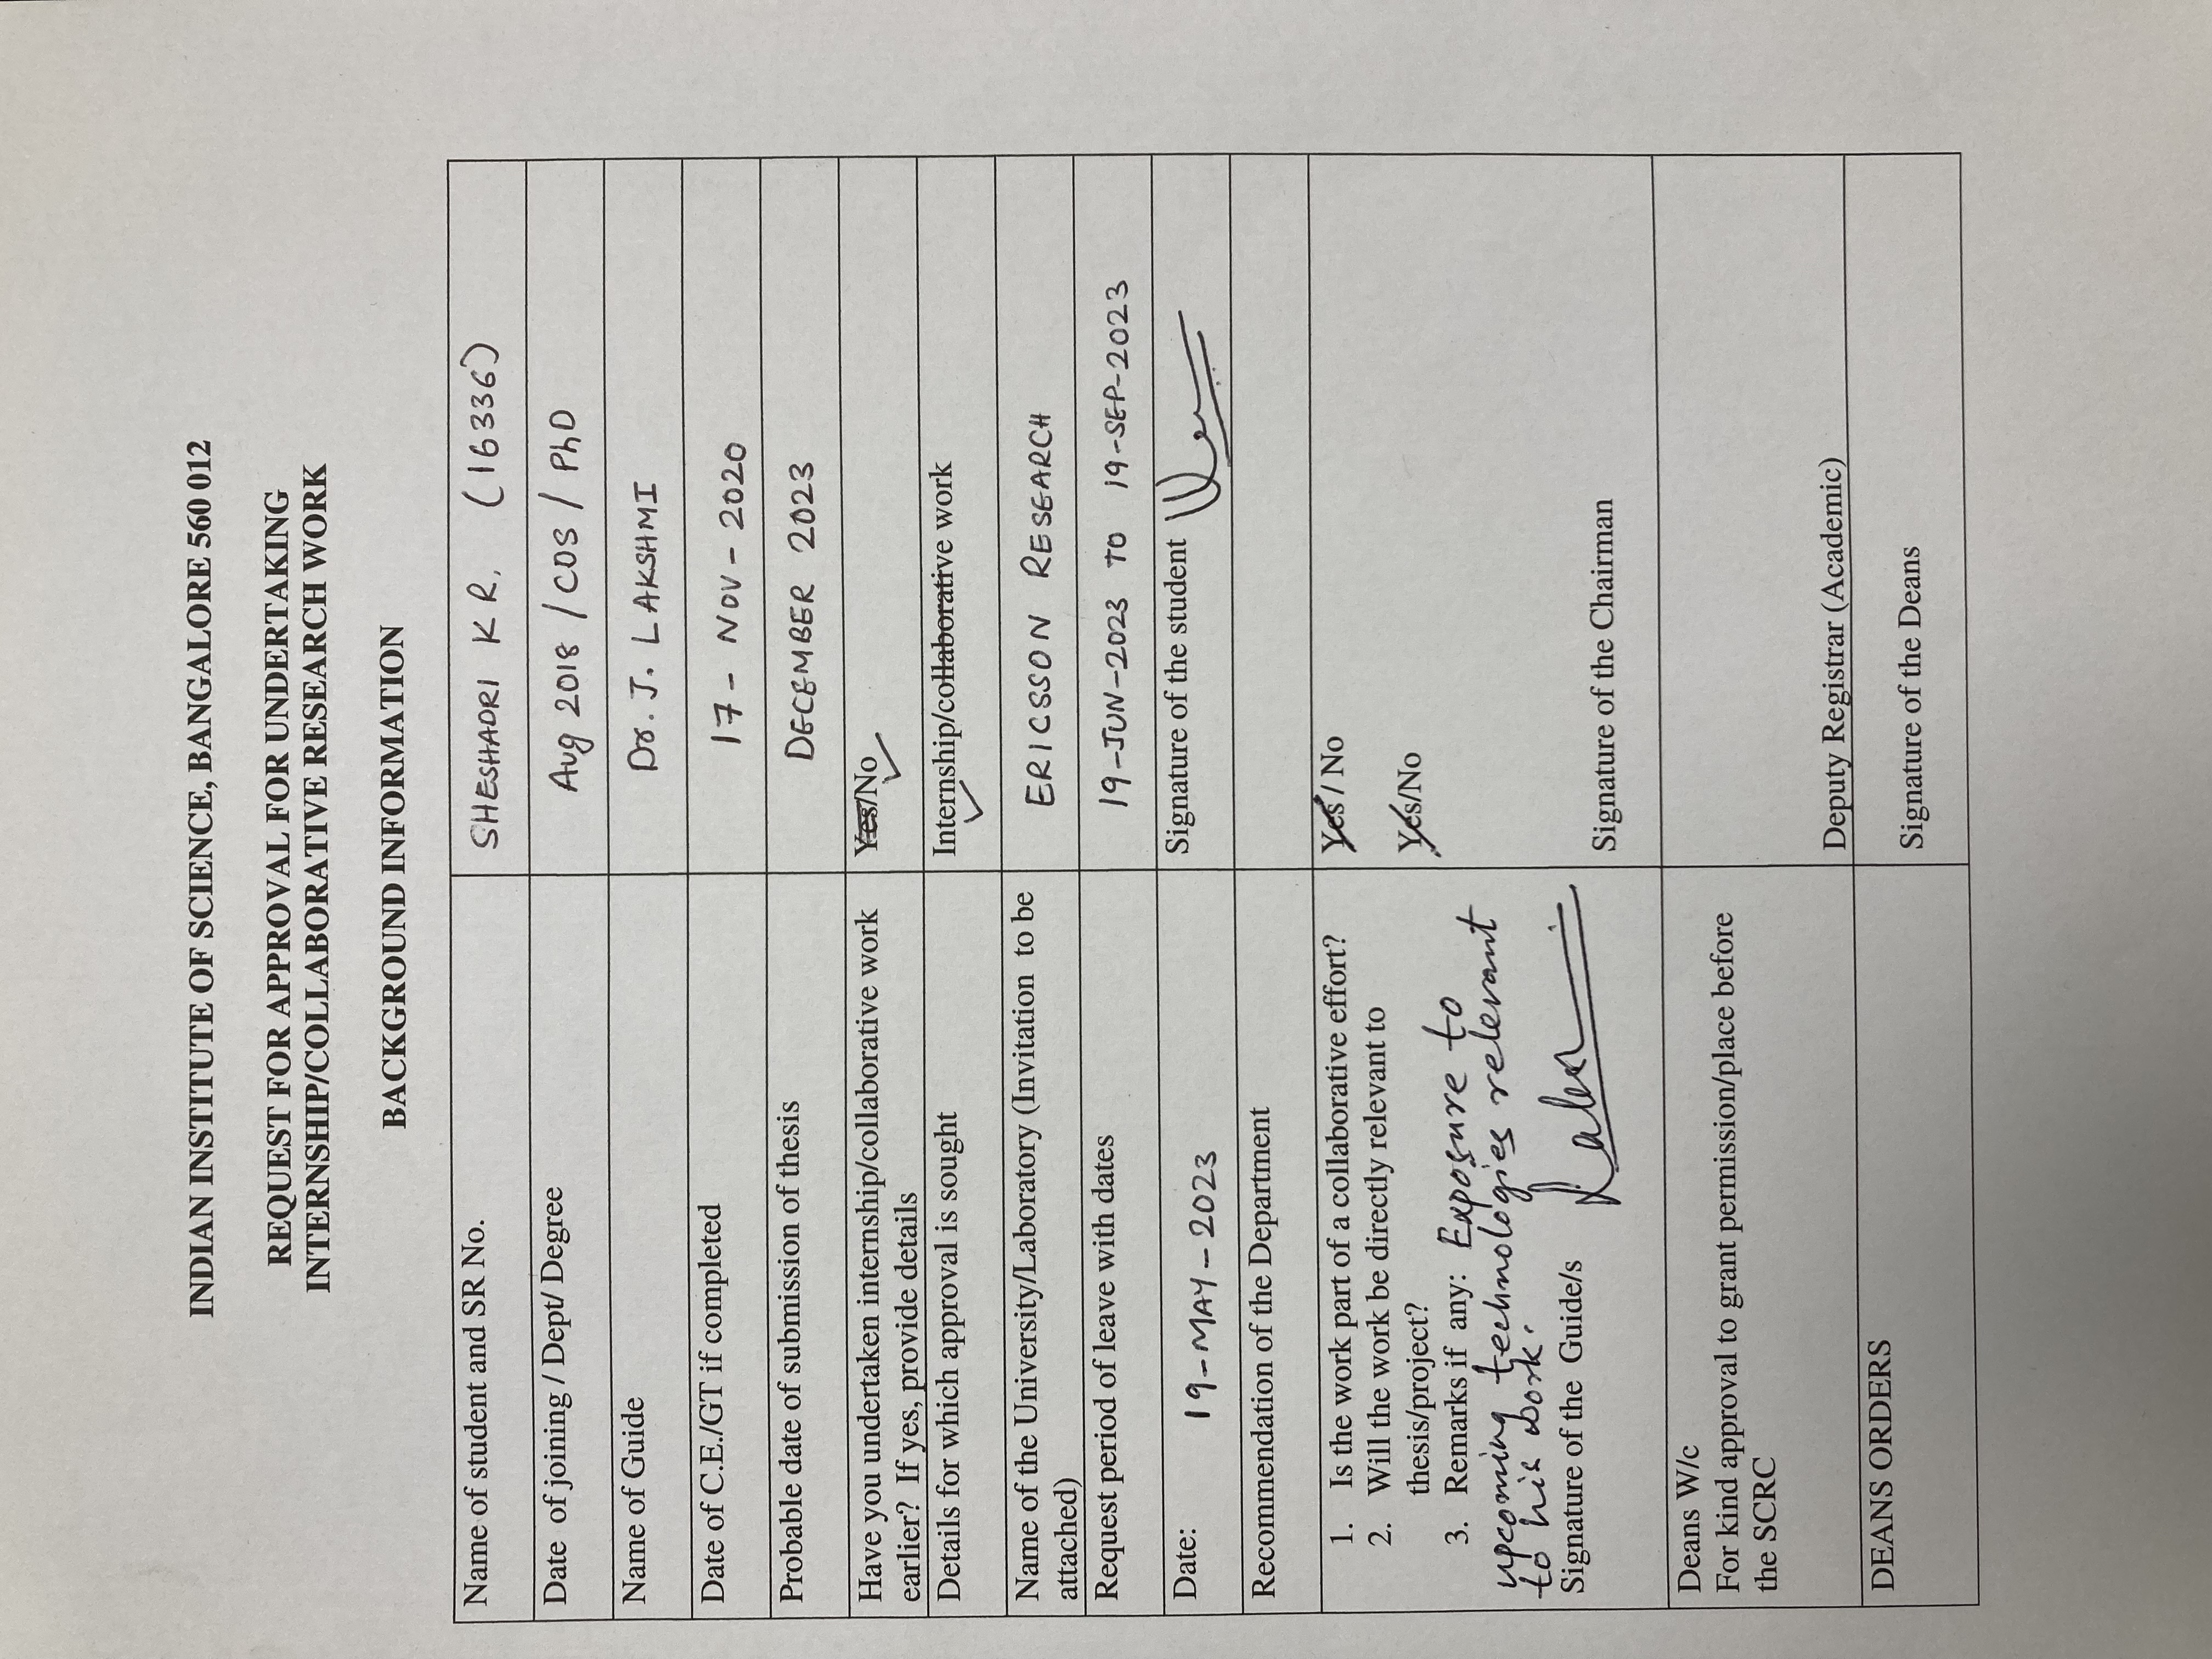 INDIAN INSTITUTE OF SCIENCE, BANGALORE 560 012
REQUEST FOR APPROVAL FOR UNDERTAKING
INTERNSHIP/COLLABORATIVE RESEARCH WORK
BACKGROUND INFORMATION
Name of student and SR No.
SHESHADRI K R. (16336)
Date of joining / Dept/ Degree
Aug 2018 / CDS / PhD
Name of Guide
Dr. J. LAKSHMI
Date of C.E./GT if completed
17 - NOV - 2020
Probable date of submission of thesis
DECEMBER 2023
Have you undertaken internship/collaborative work
earlier? If yes, provide details
Yes/No
Details for which approval is sought
Internship/collaborative work
Name of the University/Laboratory (Invitation to be
attached)
ERICSSON RESEARCH
Request period of leave with dates
19-JUN-2023 TO 19-SEP-2023
Date: 19-MAY-2023
Signature of the student
Recommendation of the Department
1. Is the work part of a collaborative effort?
Yes / No
2. Will the work be directly relevant to
thesis/project?
Yes/No
3. Remarks if any: Exposure to
upcoming technologies relevant
to his work.
Signature of the Guide/s
Signature of the Chairman
Deans W/c
For kind approval to grant permission/place before
the SCRC
Deputy Registrar (Academic)
DEANS ORDERS
Signature of the Deans